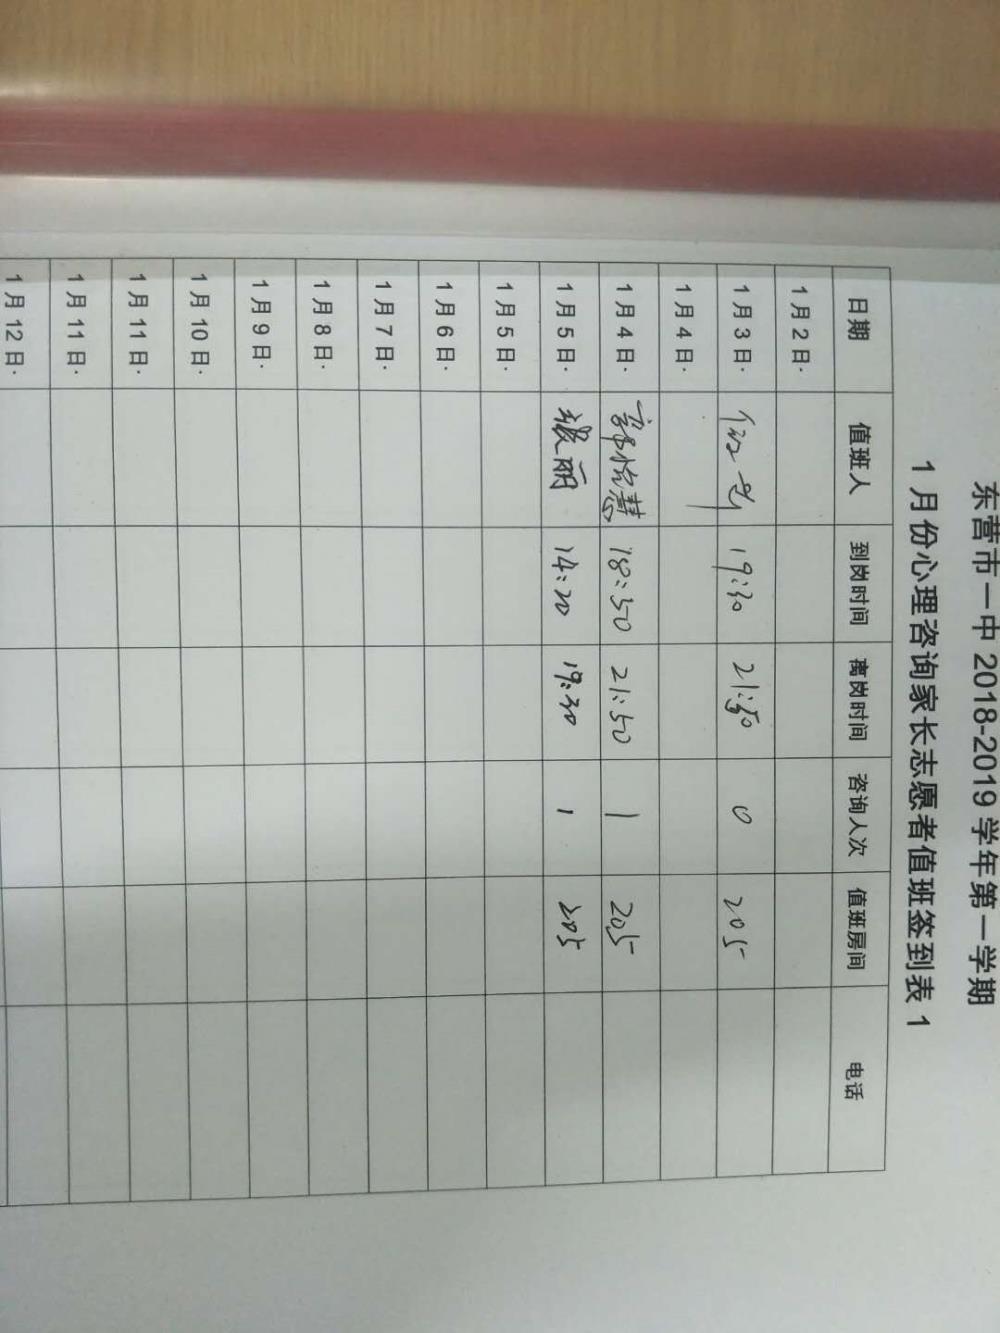 东营市一中 2018-2019 学年第一学期
1 月份心理咨询家长志愿者值班签到表 1
日期 值班人 到岗时间 离岗时间 咨询人次 值班房间 电话
1 月 2 日·
1 月 3 日· 19:30 21:50 0 205
1 月 4 日·
1 月 4 日· 郭怡慧 18:50 21:50 1 205
1 月 5 日· 张丽 14:20 19:30 1 205
1 月 5 日·
1 月 6 日·
1 月 7 日·
1 月 8 日·
1 月 9 日·
1 月 10 日·
1 月 11 日·
1 月 11 日·
1 月 12 日·